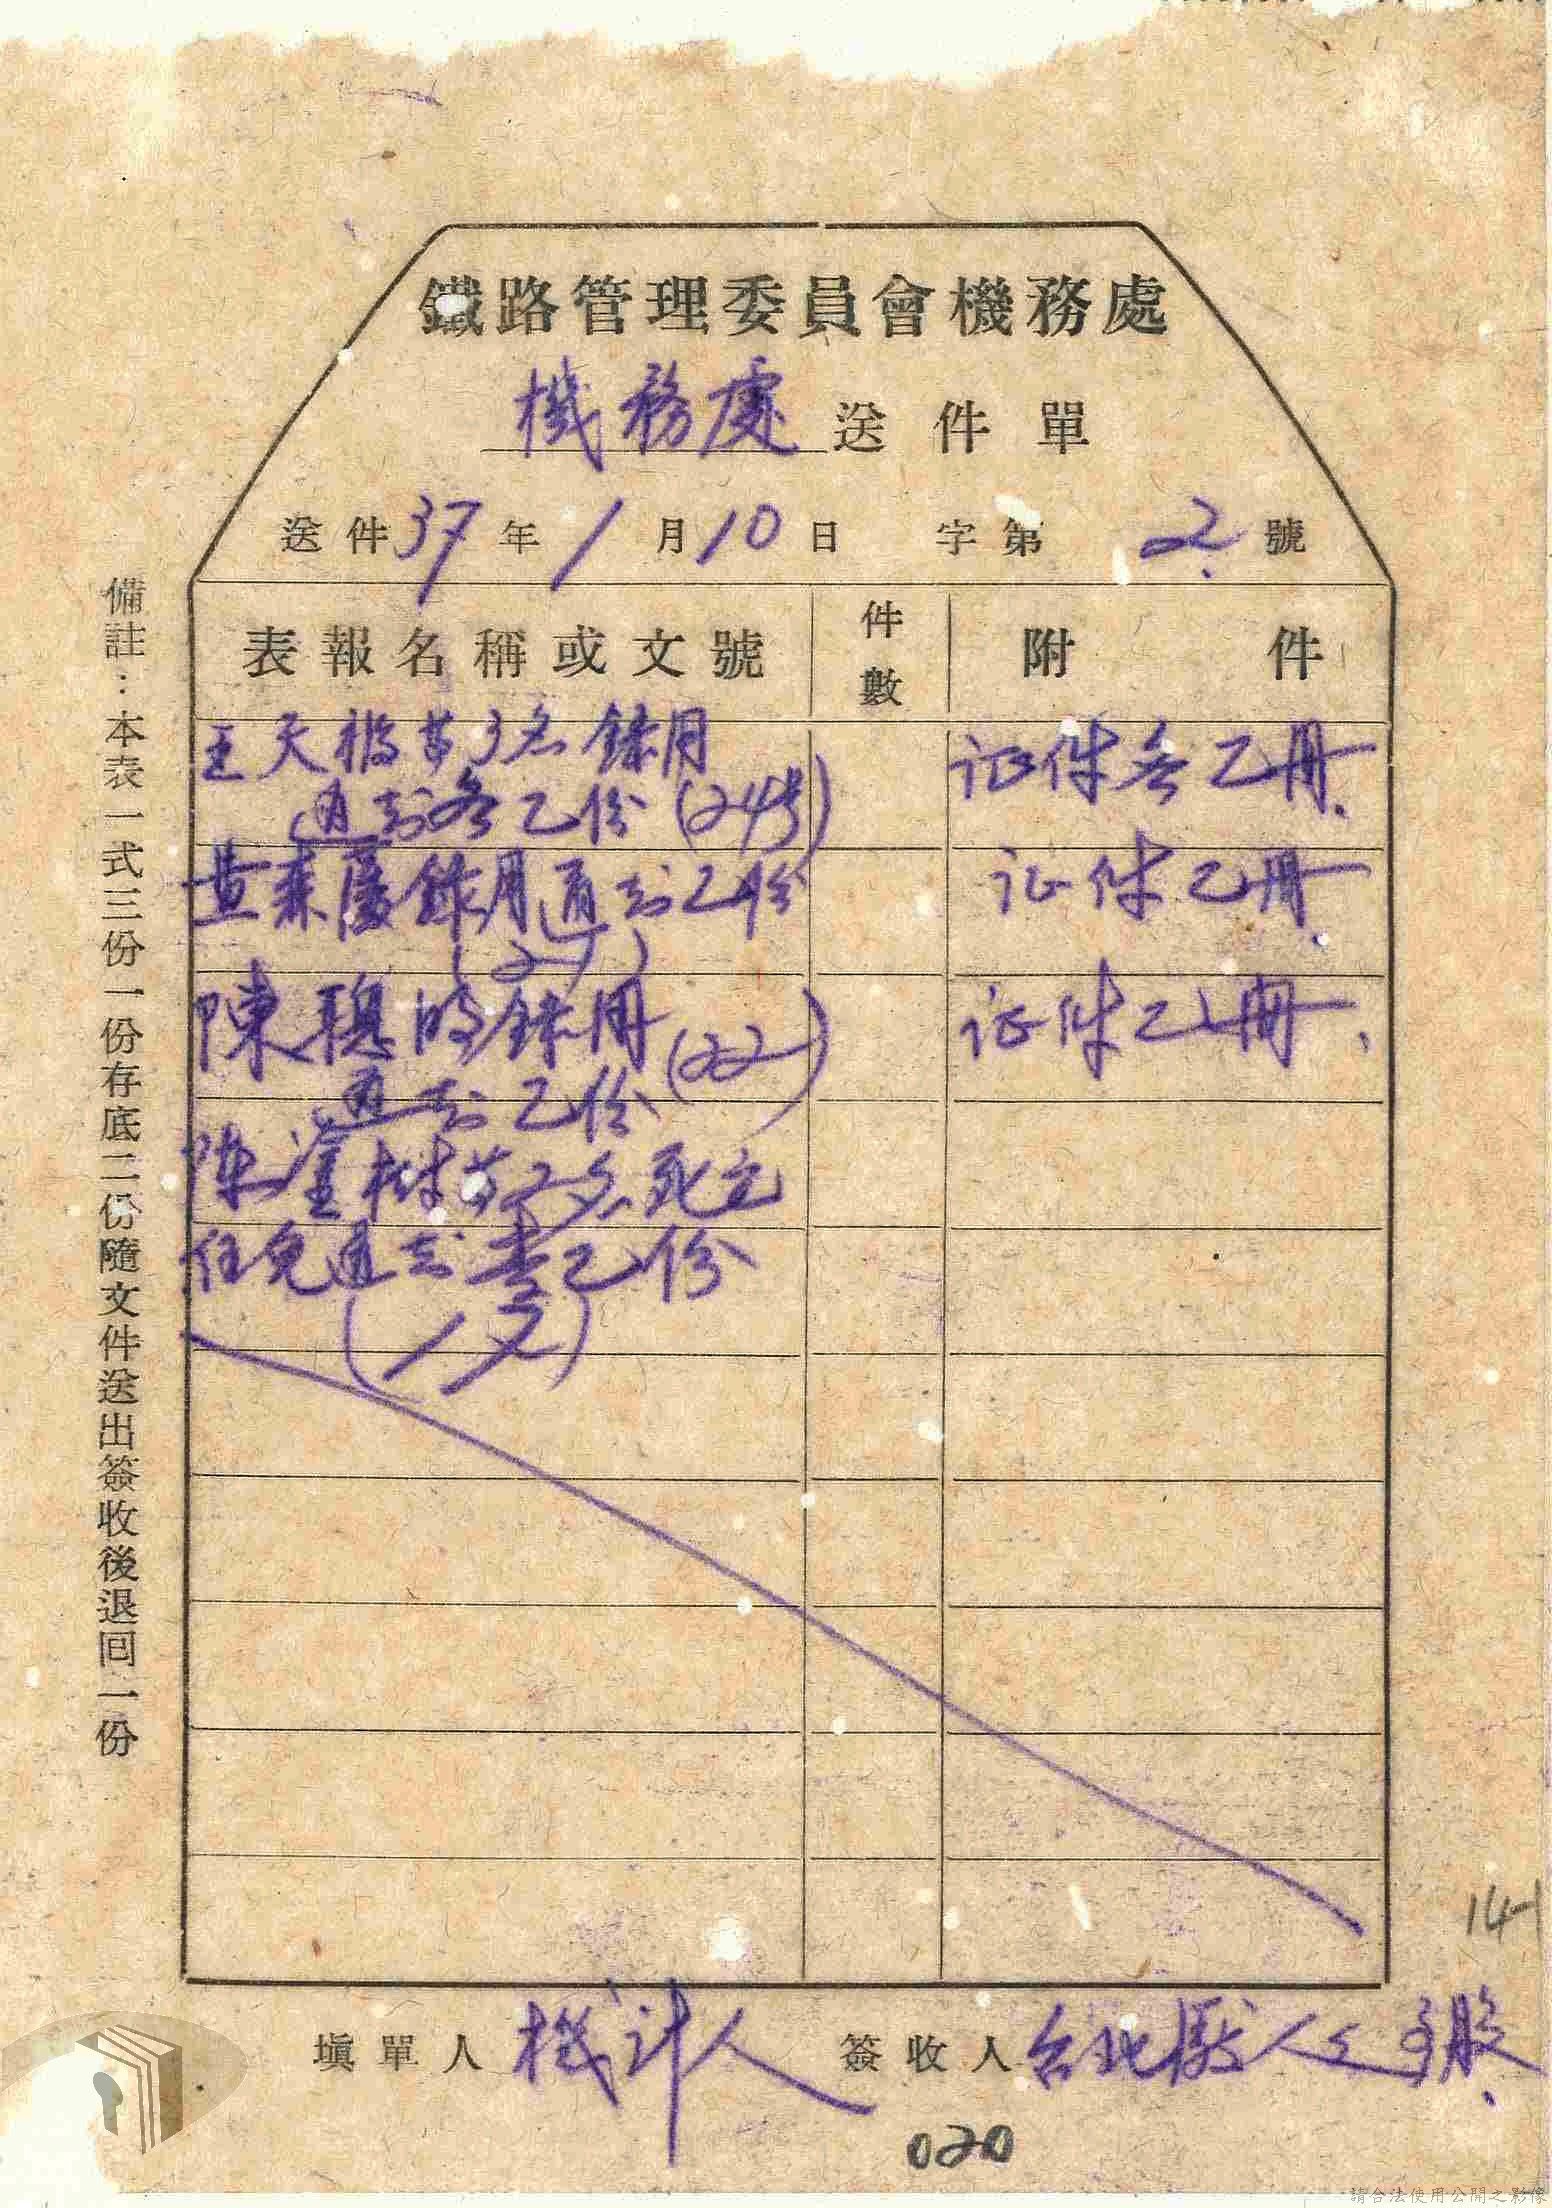 鐵路管理委員會機務處
機務處送件單
送件37年1月10日 字第2.號
表報名稱或文號 件數 附件
王天 等3名錄用 证件各乙册.
通知各乙份(24号)
黃森慶錄用通知乙份 证件乙册.
陳聰明錄用(22) 证件乙册.
通知乙份
陳 樹等2名死亡
任免通知書乙份
備註:本表一式三份一份存底二份隨文件送出簽收後退回一份
填單人 機計人 簽收人 台北 人
14-1
020
請合法使用公開之影像